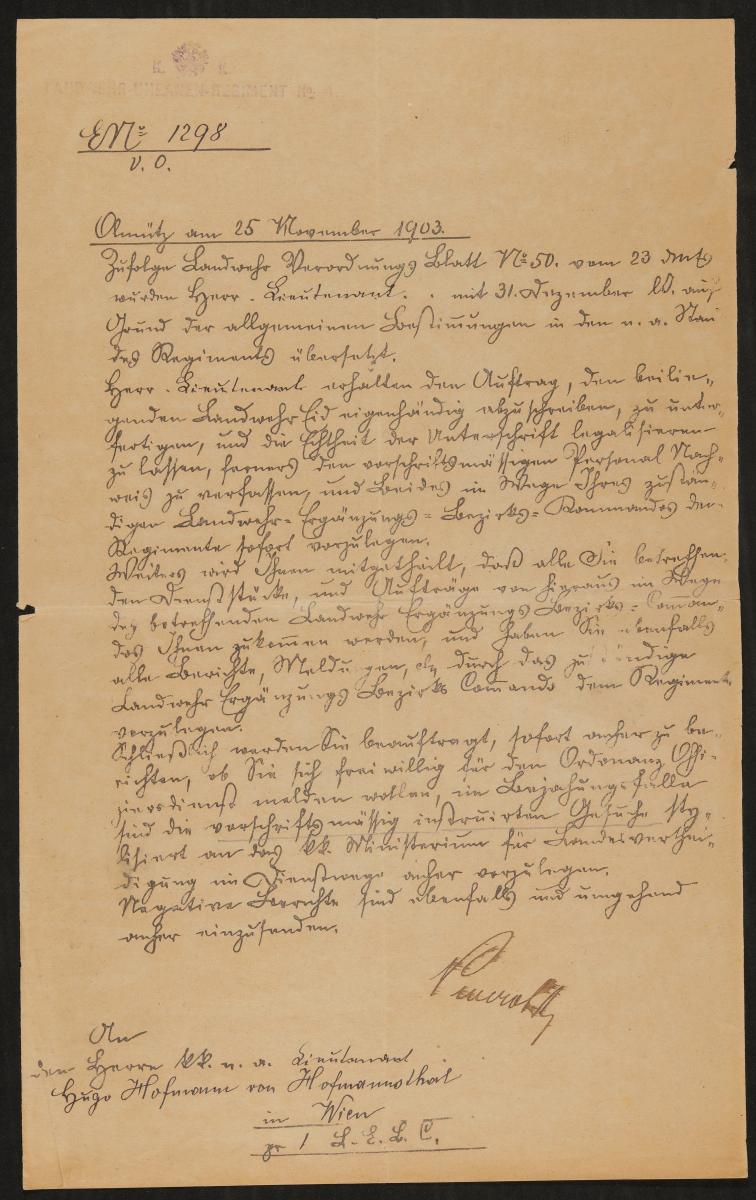 K. K.
LANDWEHR-UHLANEN-REGIMENT No
ENo 1298
v. O.
Olmütz am 25 November 1903.
Zufolge Landwehr Verordnungs Blatt No 50. vom 23 dmts
wurden Herr Lieutenant. mit 31. Dezember lJ. auf
Grund der allgemeinen Bestim̄ungen in den n. a. Stan
des Regiments übersetzt.
Herr Lieutenant erhalten den Auftrag, den beilie-
genden Landwehr Eid eigenhändig abzuschreiben, zu unter-
fertigen, und die Echtheit der Unterschrift legalisieren
zu lassen, ferners den vorschriftsmässigen Personal Nach-
weis zu verfassen, und Beides im Wege Ihres zustän-
digen Landwehr-Ergänzungs-Bezirks-Kommandos dem
Regimente sofort vorzulegen.
Weiters wird Ihnen mitgetheilt, daß alle Sie betreffen-
den Dienststücke, und Aufträge von hieraus im Wege
des betreffenden Landwehr Ergänzungs Bezirks-Com̄an-
dos Ihnen zukom̄en werden, und haben Sie ebenfalls
alle Berichte, Meldungen, etz durch das zuständige
Landwehr Ergänzungs Bezirks Com̄ando dem Regimente
vorzulegen.
Schließlich werden Sie beauftragt, sofort anher zu be-
richten, ob Sie sich freiwillig für den Ordonanz Offi-
ziersdienst melden wollen, im Bejahungsfalle
sind die vorschriftsmässig instruirten Gesuche sty-
lisiert an das kk Ministerium für Landesverthei-
digung im Dienstwege anher vorzulegen.
Negative Berichte sind ebenfalls und umgehend
anher einzusenden.
An
den Herrn kk. n. a. Lieutenant
Hugo Hofmann von Hofmannsthal
in Wien
pr 1 L. E. B. C.